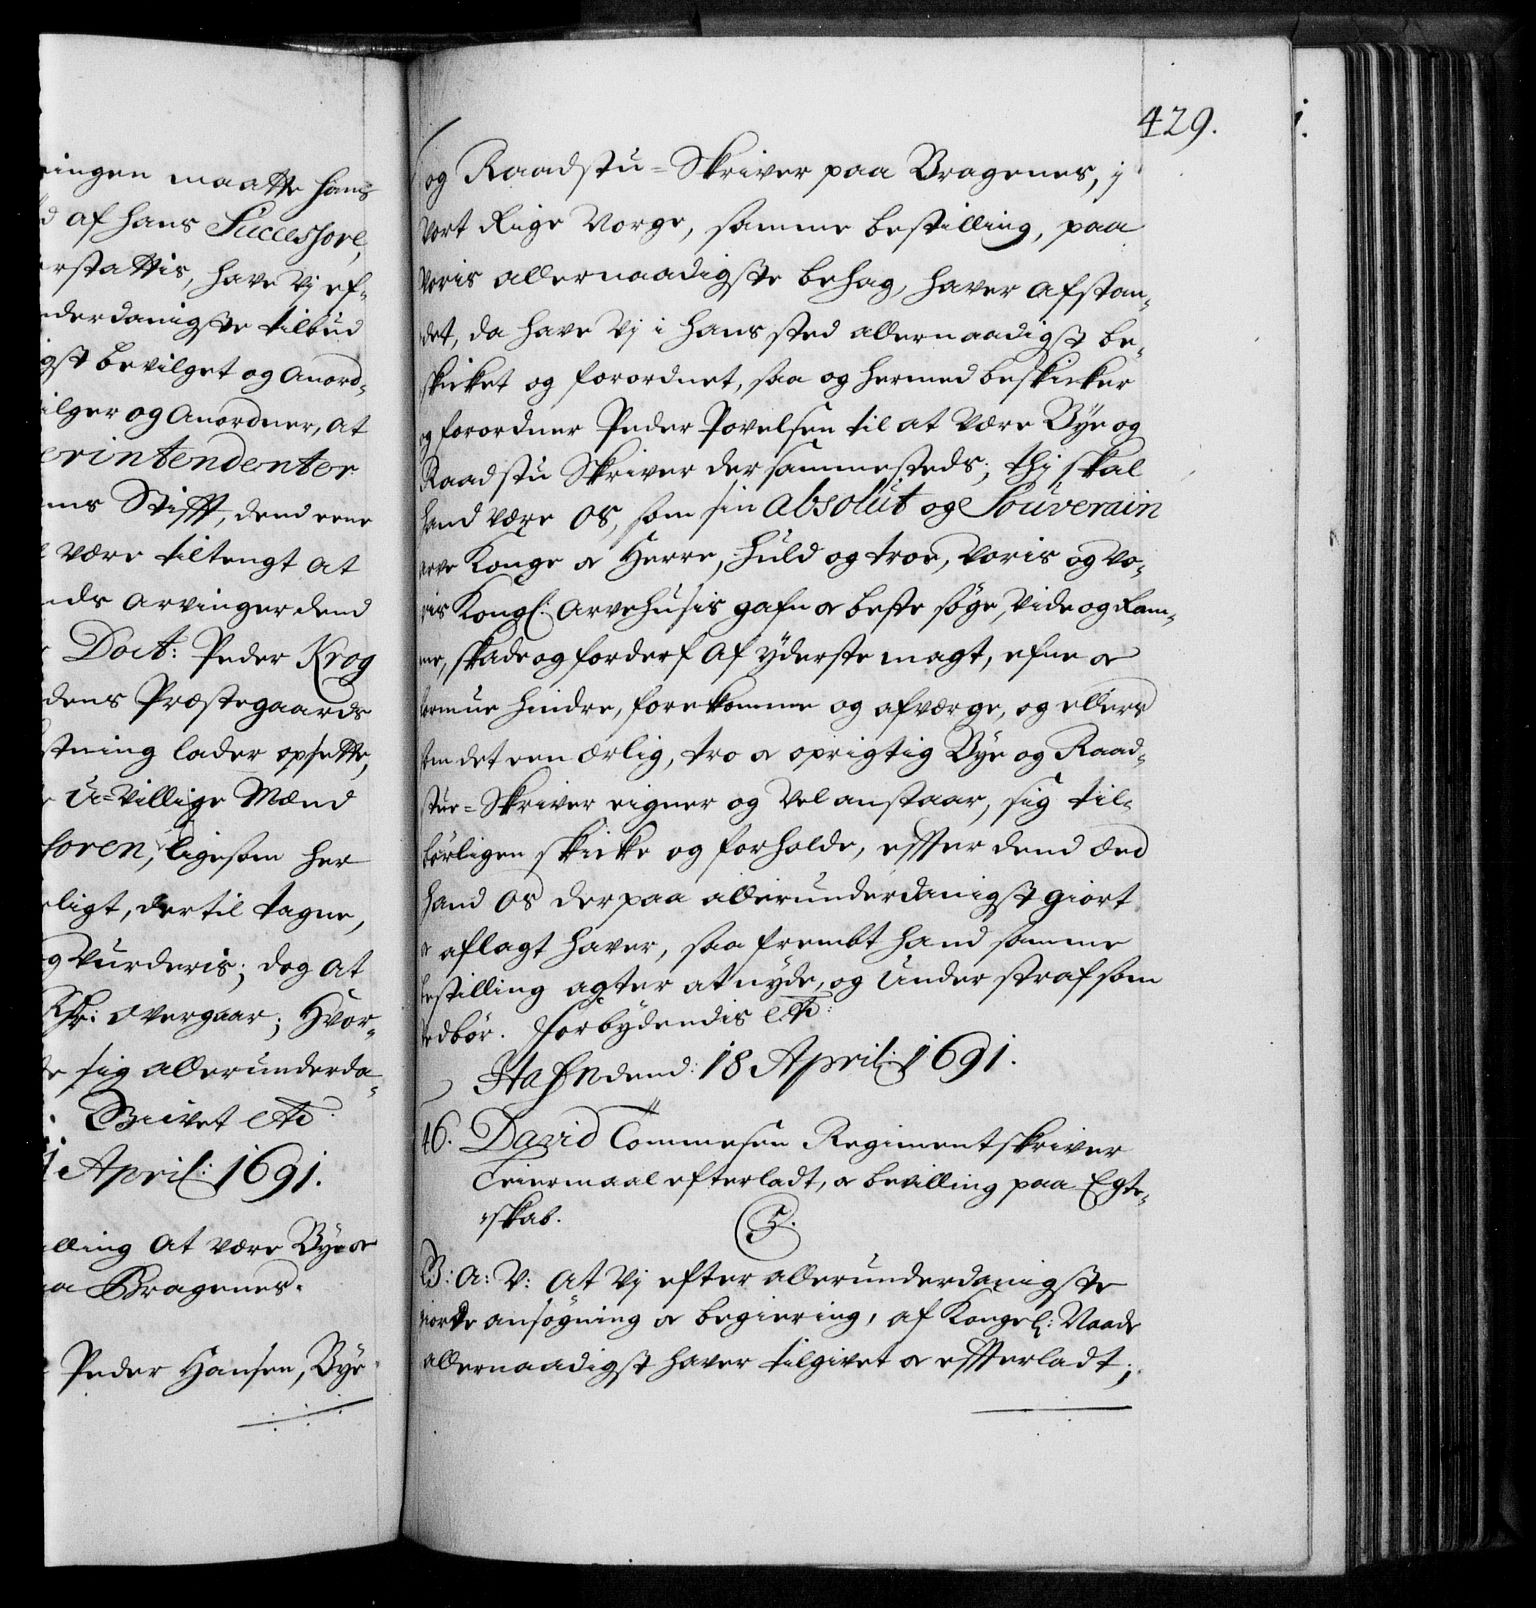 ingen maatte hans
d af hans Successore,
rstattis, have Vj ef-
derdanigste tilbud
gst bevilget og Anord-
ilger og Anordner, at
erintendenter
ms Stifft, dend eene
være tiltengt at
nds arvinger dend
Doct: Peder Krog
dens Præstegaards
tning lader opsette,
U-villige Mænd
soren, ligesom her
ligt, dertil tagne,
g vurderis; dog at
overgaar; Hvor-
sig allerunderda-
Brivet etc:
April: 1691.
lling at være Bye og
a Bragenes.
Peder Hansen, Bye
429.
og Raadstu-Skriver paa Bragenes, j
Vort Rige Norge, samme bestilling, paa
Voris allernaadigste behag, haver afstan-
det, da have Vj i hans sted allernaadigst be-
skicket og forordnet, saa og hermed beskicker
og forordner Peder Povelsen til at være Bye og
Raadstu Skriver dersammesteds; thj skal
hand være Os, som sin absolut og Souverain
arve Konge og Herre, huld og troe, Voris og Vo-
ris Kongl: Arvehusis gafn og beste søge, vide og ram-
me, skade og forderf af yderste magt, efne og
formue hindre, forekomme og afværge, og ellers
som det een ærlig, tro og oprigtig Bye og Raad-
stue-Skriver eigner og vel anstaar, sig til-
børligen skicke og forholde, effter dend æed
hand Os derpaa allerunderdanigst giort
og aflagt haver, saa frembt hand samme
bestilling agter at nyde, og under straf som
vedbør. Forbydendis etc:
Hafn dend: 18 April: 1691.
46. David Tommesen Regimentskriver
Leiermaal efterladt, og bevilling paa Egte-
skab.
5.
B: A: V: At Vj efter allerunderdanigste
giorde ansøgning og begiering, af Kongel: Naade
allernaadigst haver tilgivet og effterladt;